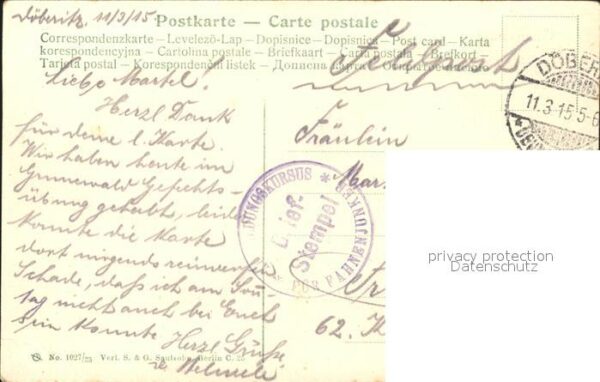 Döberitz, 11/3/15
Postkarte – Carte postale
Correspondenzkarte – Levelező-Lap – Dopisnice – Dopisnica – Post card – Karta
korespondencyjna – Cartolina postale – Briefkaart – Carta postala – Brefkort –
Tarjeta postal – Korespondenční listek – Дописна карта –
Feldpost
DÖBER
11.3.15 5-6
Liebe Martel!
Herzl Dank
für deine l. Karte.
Wir haben heute im
Grunewald Gefechts-
übung gehabt, leider
konnte die Karte
dort nirgends
Schade, daß ich am Sonn-
tag nicht auch bei Euch
sein konnte. Herzl Grüße
Fräulein
Mar
62.
DUNGSKURSUS * FÜR FAHNENJUNKER
Brief-
Stempel
privacy protection
Datenschutz
No. 1027/23 Vert. S. & G. Saulsohn, Berlin C. 25